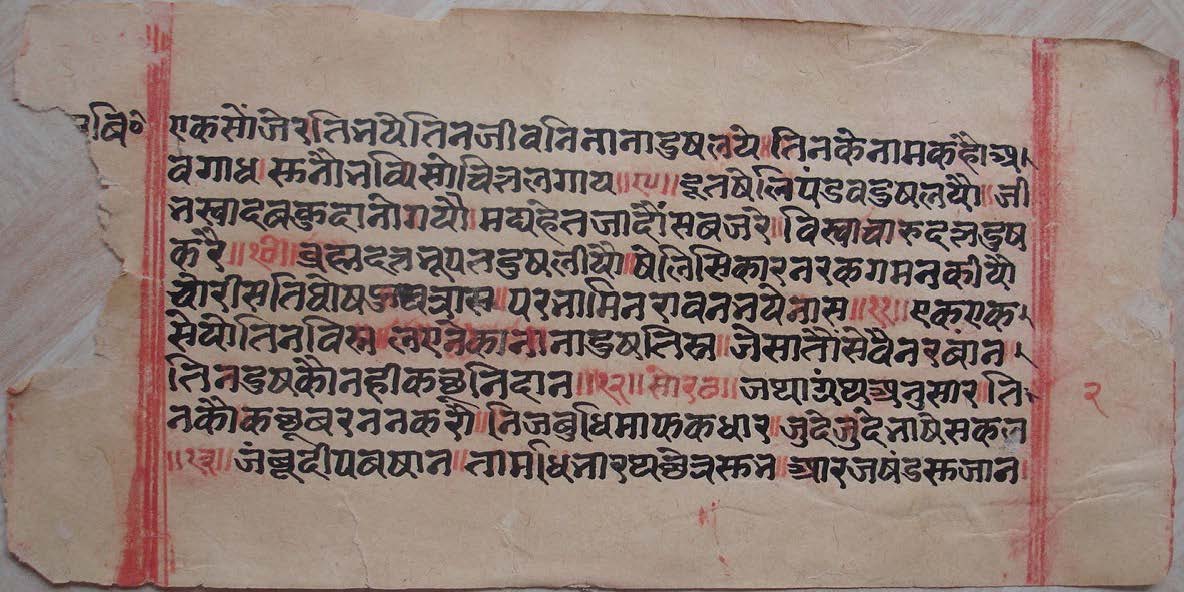 बि॰ एकसौंजेरतिभयेतिनजीवनिनानादुषलये॥तिनकेनामकहौंअ
वगाध।सुनौभव्यिसोचितलगाय॥९॥द्दूतषेलिपंडवदुषलयौ॥जी
तस्वादबकुदानोगयौ।मद्यहेतजादौंसबजरे॥विस्वाचारुदत्तदुष
करै॥१०॥ब्रह्मदत्तभूपतदुषलीयौ॥षेलिसिकारनरकगमनकीयौ
चोरीसतिघोष त्रास॥परनामिनरावननयेनास॥११॥एकएक
सेयोतिनविस्न लएनेकानानादुषतिस्न॥जेसातौंसेवैनरबांन
तिनदुषकौनहीकछूनिदान॥१२॥सोरठा॥जथाग्रंथअनुसार॥ति
नकौकछूबरननकरौं॥निजबुधिमाफकधार॥जुदेजुदेभाषेसकल
॥१३॥जंबूदीपबषान॥तामधिभारथछेत्रसुभ॥आरजषंडसुजान
२